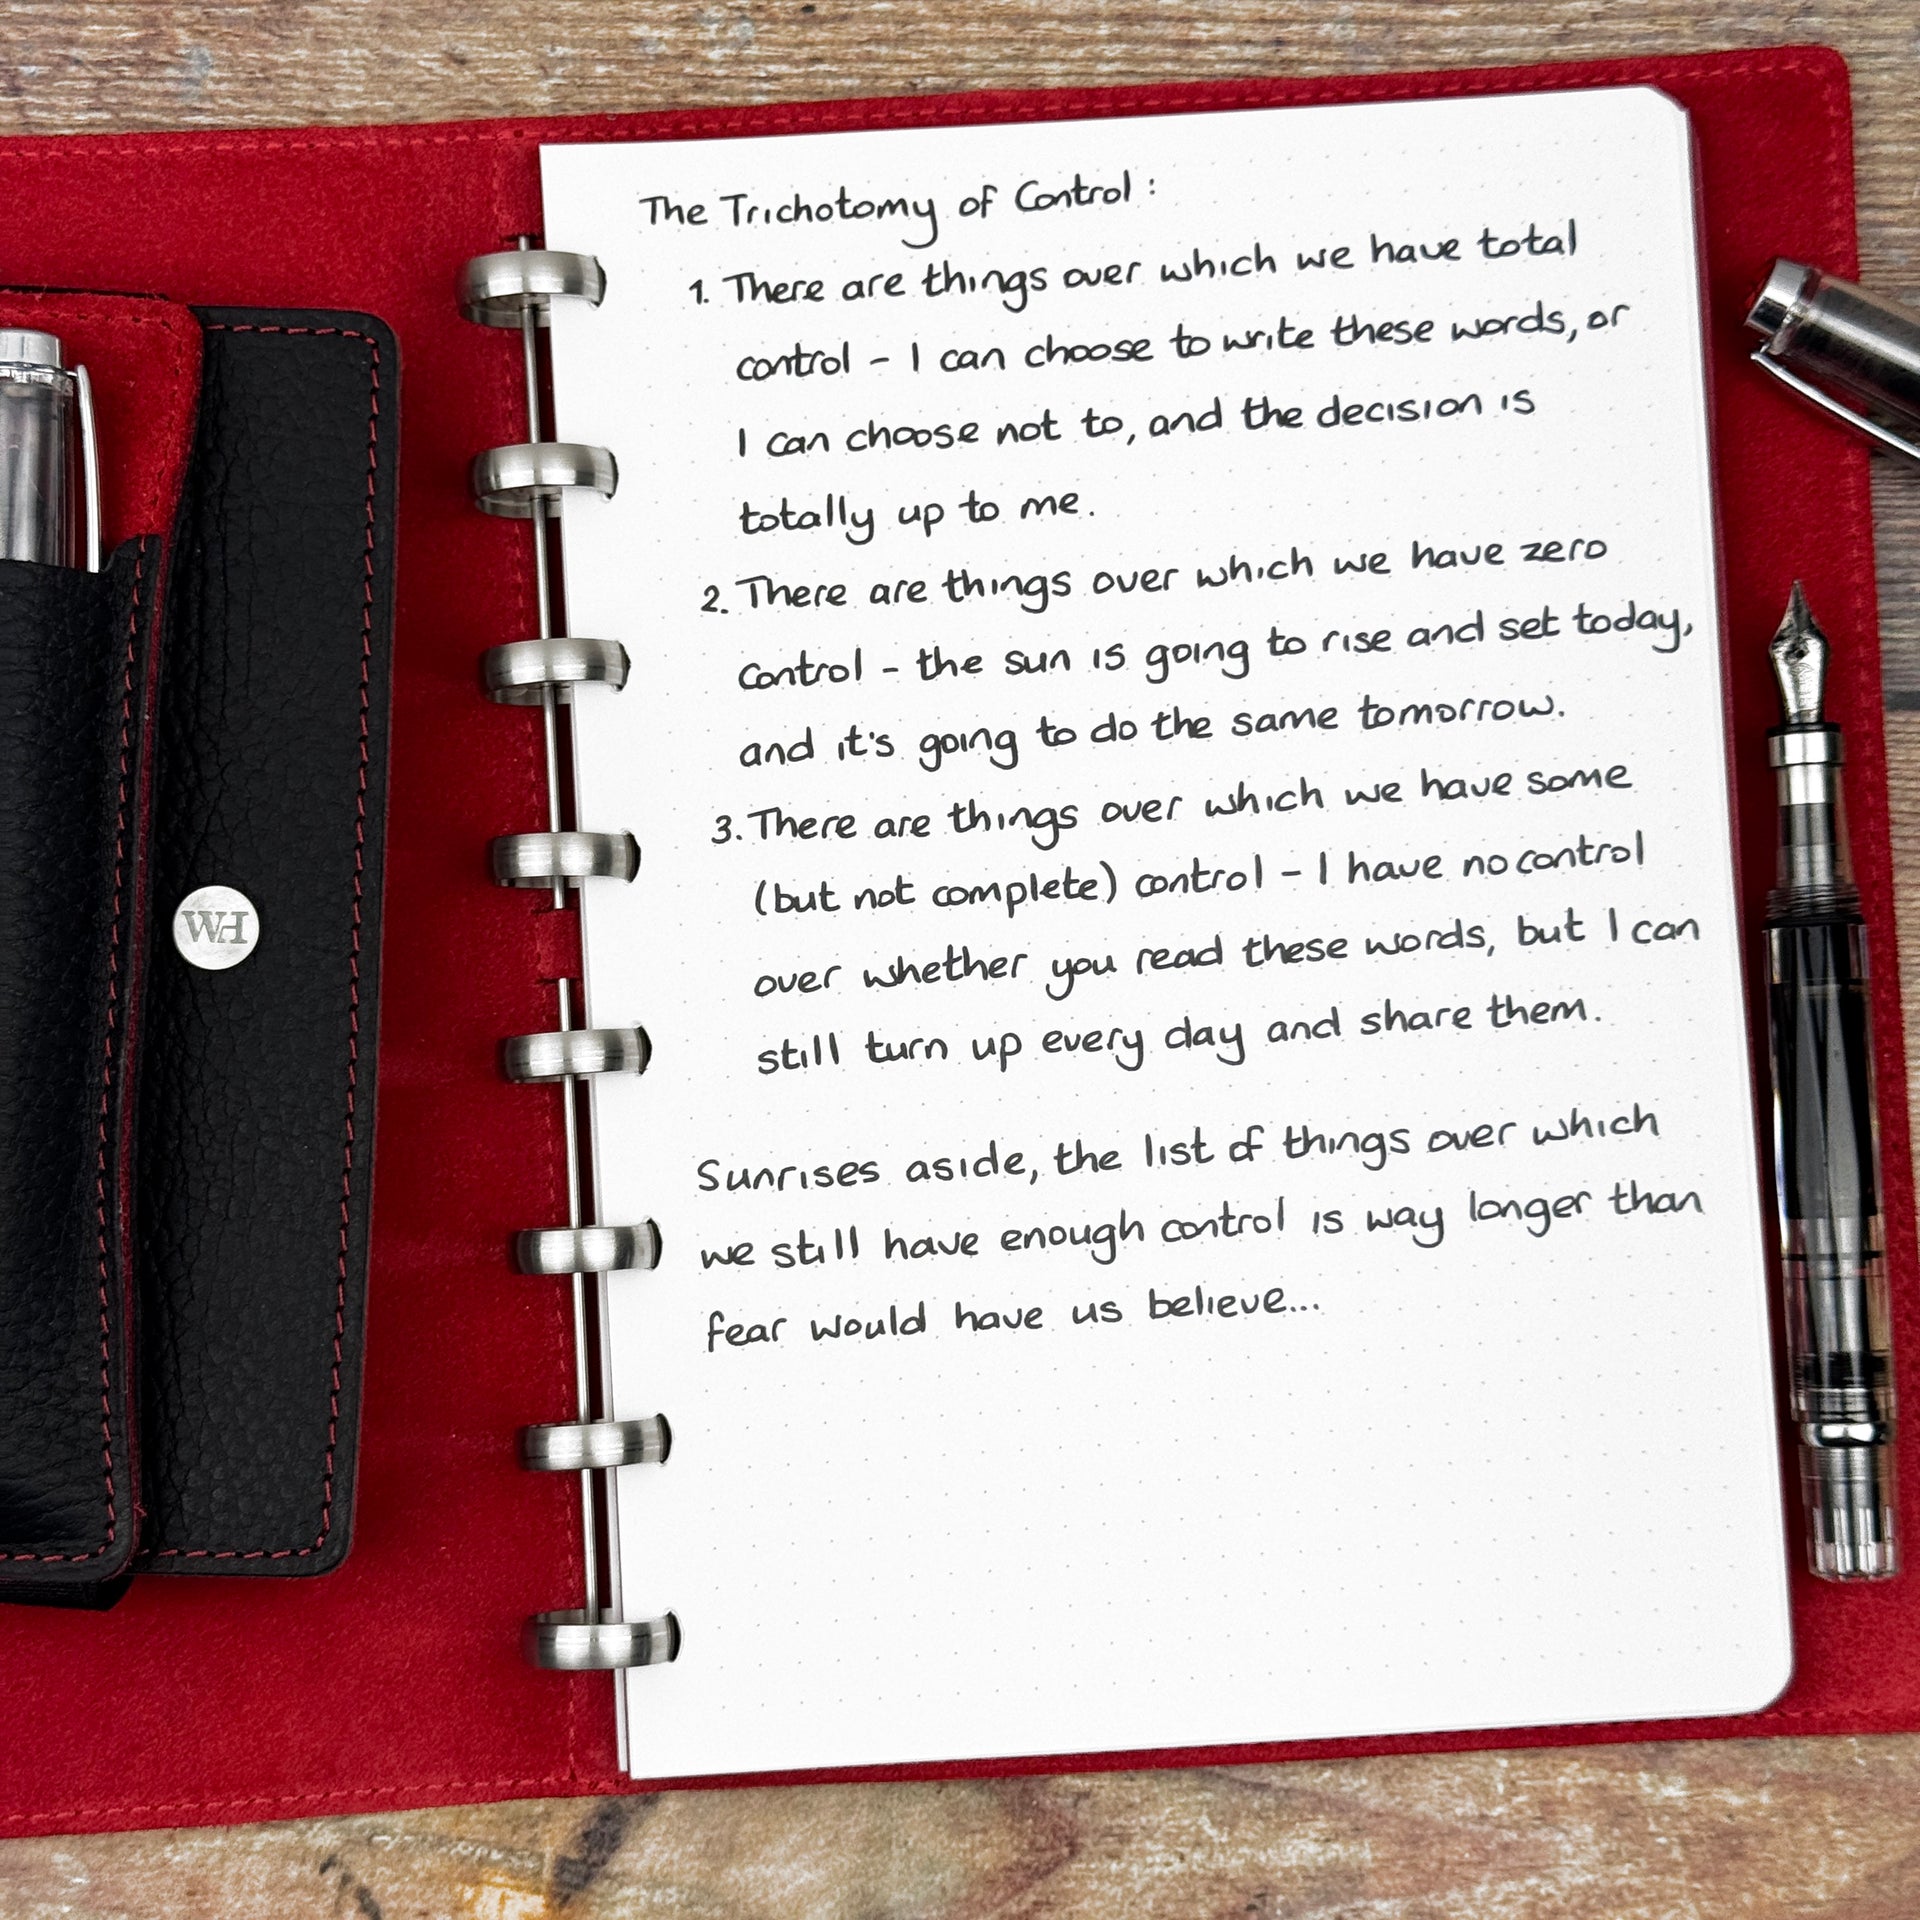 The Trichotomy of Control:
1. There are things over which we have total
control - I can choose to write these words, or
I can choose not to, and the decision is
totally up to me.
2. There are things over which we have zero
control - the sun is going to rise and set today,
and it's going to do the same tomorrow.
3. There are things over which we have some
(but not complete) control - I have no control
over whether you read these words, but I can
still turn up every day and share them.
Sunrises aside, the list of things over which
we still have enough control is way longer than
fear would have us believe...
WH